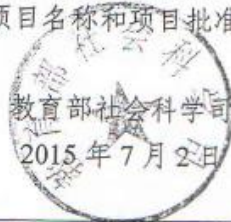 项目名称和项目批准
教育部社会科学司
2015年7月2日